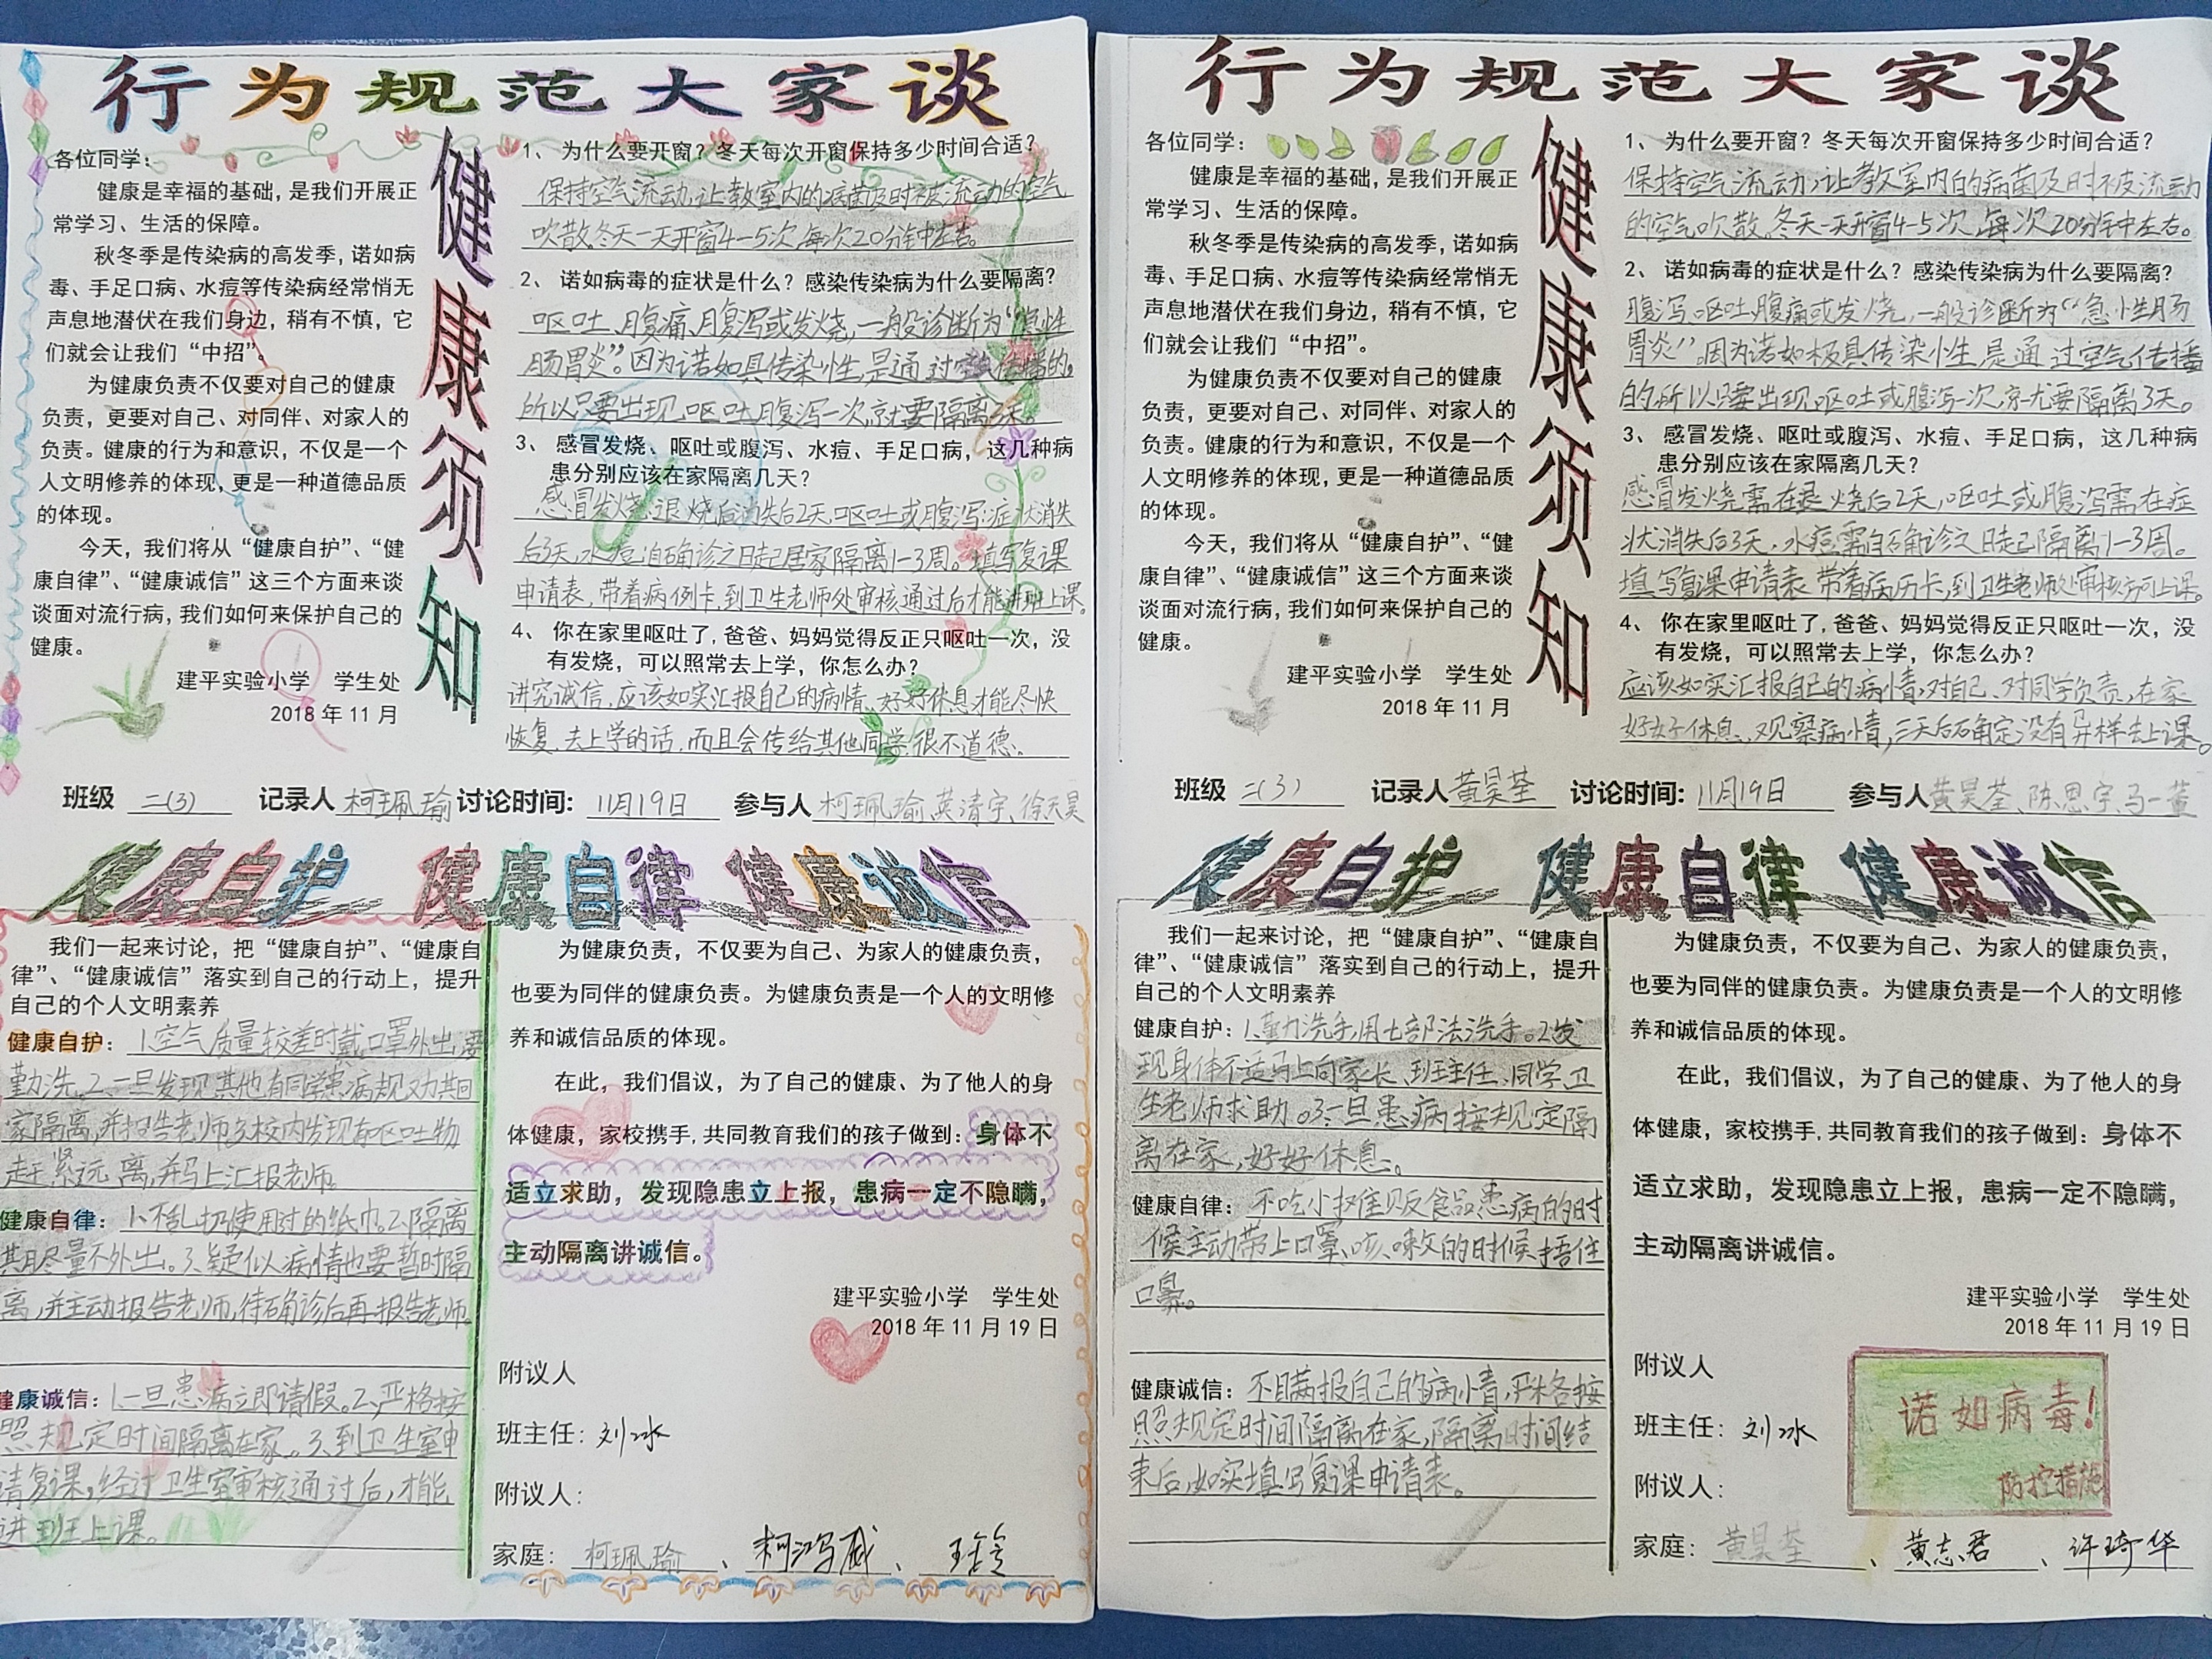 行为规范大家谈
健康须知
各位同学：
健康是幸福的基础，是我们开展正
常学习、生活的保障。
秋冬季是传染病的高发季，诺如病
毒、手足口病、水痘等传染病经常悄无
声息地潜伏在我们身边，稍有不慎，它
们就会让我们“中招”。
为健康负责不仅要对自己的健康
负责，更要对自己、对同伴、对家人的
负责。健康的行为和意识，不仅是一个
人文明修养的体现，更是一种道德品质
的体现。
今天，我们将从“健康自护”、“健
康自律”、“健康诚信”这三个方面来谈
谈面对流行病，我们如何来保护自己的
健康。
建平实验小学　学生处
2018年11月
1、为什么要开窗？冬天每次开窗保持多少时间合适？
保持空气流动，让教室内的病菌及时被流动的空气
吹散。冬天一天开窗4-5次，每次20分钟左右。
2、诺如病毒的症状是什么？感染传染病为什么要隔离？
呕吐、腹痛、腹泻或发烧，一般诊断为“急性
肠胃炎”。因为诺如具传染性，是通过空气传播的，
所以只要出现呕吐腹泻一次，就要隔离3天。
3、感冒发烧、呕吐或腹泻、水痘、手足口病，这几种病
患分别应该在家隔离几天？
感冒发烧：退烧后消失后2天，呕吐或腹泻：症状消失
后3天，水痘：自确诊之日起居家隔离1-3周。填写复课
申请表，带着病例卡，到卫生老师处审核通过后才能进班上课。
4、你在家里呕吐了，爸爸、妈妈觉得反正只呕吐一次，没
有发烧，可以照常去上学，你怎么办？
讲究诚信，应该如实汇报自己的病情，好好休息才能尽快
恢复，去上学的话，而且会传给其他同学，很不道德。
班级 二(3) 记录人 柯珮瑜 讨论时间：11月19日 参与人 柯珮瑜、英清宇、徐天昊
健康自护 健康自律 健康诚信
我们一起来讨论，把“健康自护”、“健康自
律”、“健康诚信”落实到自己的行动上，提升
自己的个人文明素养
健康自护：1.空气质量较差时戴口罩外出，要
勤洗。2.一旦发现其他有同学患病规劝其回
家隔离，并报告老师。3.校内发现有呕吐物
赶紧远离，并马上汇报老师。
健康自律：1、不乱扔使用过的纸巾。2、隔离
其尽量不外出。3、疑似病情也要暂时隔
离，并主动报告老师，待确诊后再报告老师。
健康诚信：1.一旦患病立即请假。2、严格按
照规定时间隔离在家。3、到卫生室申
请复课，经过卫生室审核通过后，才能
进到班上课。
为健康负责，不仅要为自己、为家人的健康负责，
也要为同伴的健康负责。为健康负责是一个人的文明修
养和诚信品质的体现。
在此，我们倡议，为了自己的健康、为了他人的身
体健康，家校携手，共同教育我们的孩子做到：身体不
适立求助，发现隐患立上报，患病一定不隐瞒，
主动隔离讲诚信。
建平实验小学　学生处
2018年11月19日
附议人
班主任：刘冰
附议人：
家庭：柯珮瑜、柯鸿威、
行为规范大家谈
健康须知
各位同学：
健康是幸福的基础，是我们开展正
常学习、生活的保障。
秋冬季是传染病的高发季，诺如病
毒、手足口病、水痘等传染病经常悄无
声息地潜伏在我们身边，稍有不慎，它
们就会让我们“中招”。
为健康负责不仅要对自己的健康
负责，更要对自己、对同伴、对家人的
负责。健康的行为和意识，不仅是一个
人文明修养的体现，更是一种道德品质
的体现。
今天，我们将从“健康自护”、“健
康自律”、“健康诚信”这三个方面来谈
谈面对流行病，我们如何来保护自己的
健康。
建平实验小学　学生处
2018年11月
1、为什么要开窗？冬天每次开窗保持多少时间合适？
保持空气流动，让教室内的病菌及时被流动
的空气吹散。冬天一天开窗4-5次，每次20分钟左右。
2、诺如病毒的症状是什么？感染传染病为什么要隔离？
腹泻、呕吐、腹痛或发烧，一般诊断为“急性肠
胃炎”。因为诺如极具传染性，是通过空气传播
的，所以只要出现呕吐或腹泻一次，就要隔离3天。
3、感冒发烧、呕吐或腹泻、水痘、手足口病，这几种病
患分别应该在家隔离几天？
感冒发烧需在退烧后2天，呕吐或腹泻需在症
状消失后3天，水痘需自确诊之日起隔离1-3周。
填写复课申请表，带着病历卡，到卫生老师处审核方可上课。
4、你在家里呕吐了，爸爸、妈妈觉得反正只呕吐一次，没
有发烧，可以照常去上学，你怎么办？
应该如实汇报自己的病情，对自己、对同学负责，在家
好好休息，观察病情，三天后确定没有异样去上课。
班级 二(3) 记录人 黄昊荃 讨论时间：11月19日 参与人 黄昊荃、陈思宇、马一萱
健康自护 健康自律 健康诚信
我们一起来讨论，把“健康自护”、“健康自
律”、“健康诚信”落实到自己的行动上，提升
自己的个人文明素养
健康自护：1、勤洗手，用七部法洗手。2、发
现身体不适马上向家长、班主任、同学、卫
生老师求助。3、一旦患病按规定隔
离在家，好好休息。
健康自律：不吃小摊贩食品，患病的时
候主动带上口罩，咳嗽的时候捂住
口鼻。
健康诚信：不瞒报自己的病情，严格按
照规定时间隔离在家，隔离时间结
束后，如实填写复课申请表。
为健康负责，不仅要为自己、为家人的健康负责，
也要为同伴的健康负责。为健康负责是一个人的文明修
养和诚信品质的体现。
在此，我们倡议，为了自己的健康、为了他人的身
体健康，家校携手，共同教育我们的孩子做到：身体不
适立求助，发现隐患立上报，患病一定不隐瞒，
主动隔离讲诚信。
建平实验小学　学生处
2018年11月19日
附议人
班主任：刘冰
附议人：
诺如病毒！
防控措施
家庭：黄昊荃、黄志君、许琦华